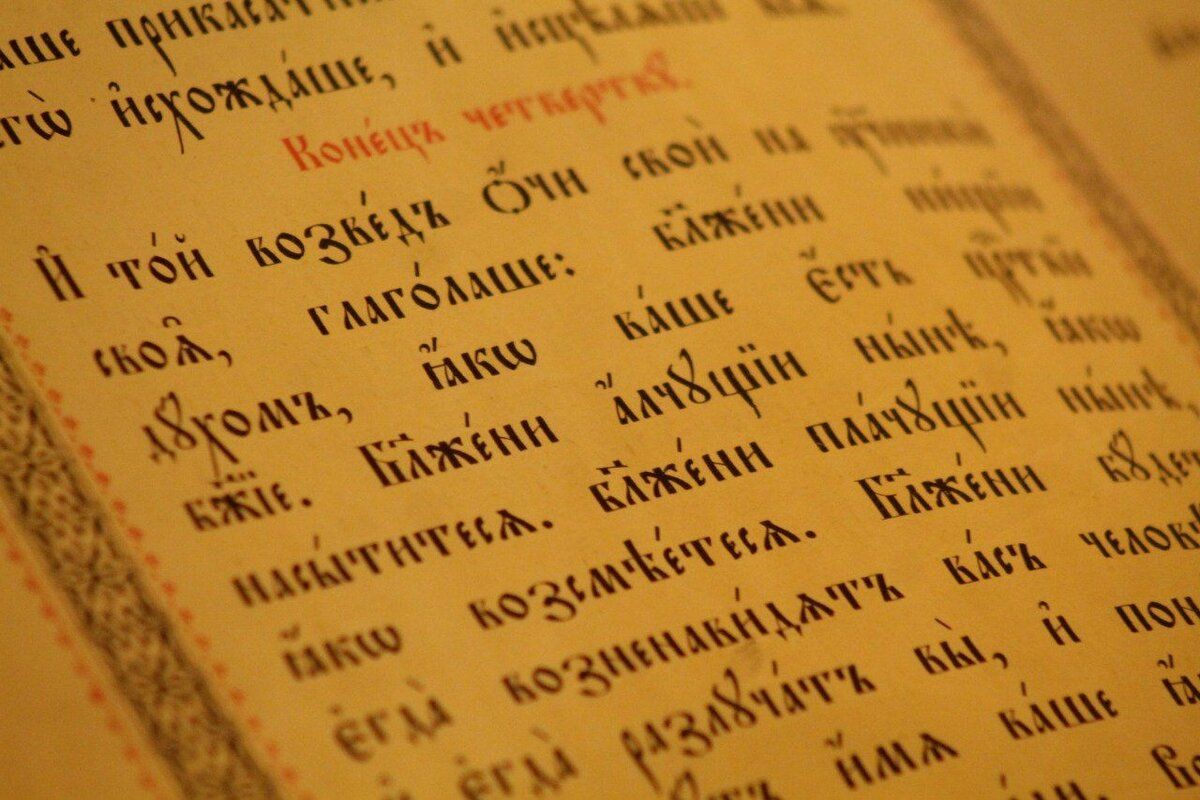 аше прикаса́ти
єгѡ̀ и҆схожда́ше, и҆ и҆сцѣлѧ́ше всѧ̀.
Коне́цъ четверткꙋ̀.
И҆ то́й возве́дъ ѻ҆́чи своѝ на ᲂу҆чн҃ки̑
своѧ̑, глаго́лаше: бл҃же́ни ни́щїи
дꙋ́хомъ, ꙗ҆́кѡ ва́ше є҆́сть црⷭ҇твїе
бж҃їе. Бл҃же́ни а҆́лчꙋщїи ны́нѣ, ꙗ҆́кѡ
насы́титесѧ. бл҃же́ни пла́чꙋщїи ны́нѣ,
ꙗ҆́кѡ возсмѣе́тесѧ. Бл҃же́ни бꙋ́дете
є҆гда̀ возненави́дѧтъ ва́съ человѣ
и҆ є҆гда̀ разлꙋча́тъ вы̀, и҆ пон
и҆́мѧ ва́ше ꙗ҆́